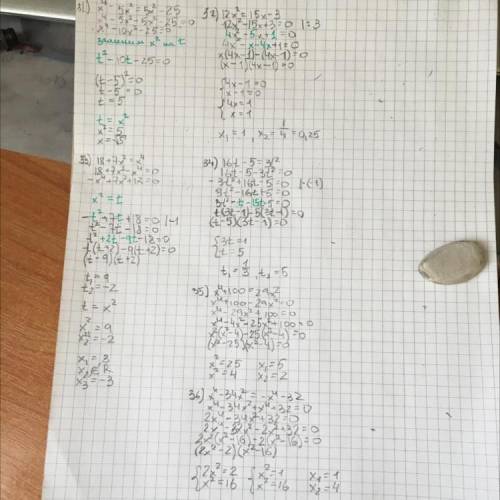 31)
x⁴-5x²=5x²-25
x⁴-5x²-5x²-25=0
x⁴-10x²-25=0
t²-10t-25=0
(t-5)²=0
t-5=0
t=5
t=x²
x²=5
x=√5
32) 12x²=15x-3
12x²-15x+3=0 |:3
4x²-5x+1=0
4x²-x-4x+1=0
x(4x-1)-(4x-1)=0
(x-1)(4x-1)=0
{4x-1=0
x-1=0
{4x=1
x=1
x₁=1, x₂=1/4=0,25
33) 18+7x²=x⁴
18+7x²-x⁴=0
-x⁴+7x²+18=0
x²=t
-t²+7t+18=0 |-1
t²-7t-18=0
t²+2t-9t-18=0
t(t+2)-9(t+2)=0
(t-9)(t+2)
t₁=9
t₂=-2
t=x²
x²=9
x²=-2
x₁=3
x₃=-3
34) 16t-5=3t²
16t-5-3t²=0
-3t²+16t-5=0 |·(-1)
3t²-16t+5=0
3t²-t-15t+5=0
t(3t-1)-5(3t-1)=0
(t-5)(3t-1)=0
{3t=1
t=5
t₁=1/3, t₂=5
35) x⁴+100=29x²
x⁴+100-29x²=0
x⁴-29x²+100=0
x⁴-4x²-25x²+100=0
x²(x²-4)-25(x²-4)=0
(x²-25)(x²-4)=0
x²=25 x₁=5
x²=4 x₂=2
36) x⁴-34x²=-x⁴-32
x⁴-34x²+x⁴+32=0
2x⁴-34x²+32=0
2x⁴-32x²-2x²+32=0
2x²(x²-16)-2(x²-16)=0
(2x²-2)(x²-16)
{2x²=2 {x²=1 x₁=1
x²=16 x²=16 x₂=4